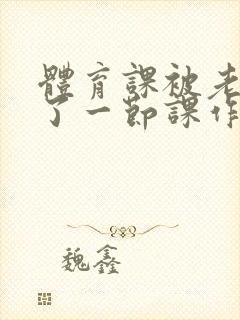 體育課被老
了一節課作
魏鑫